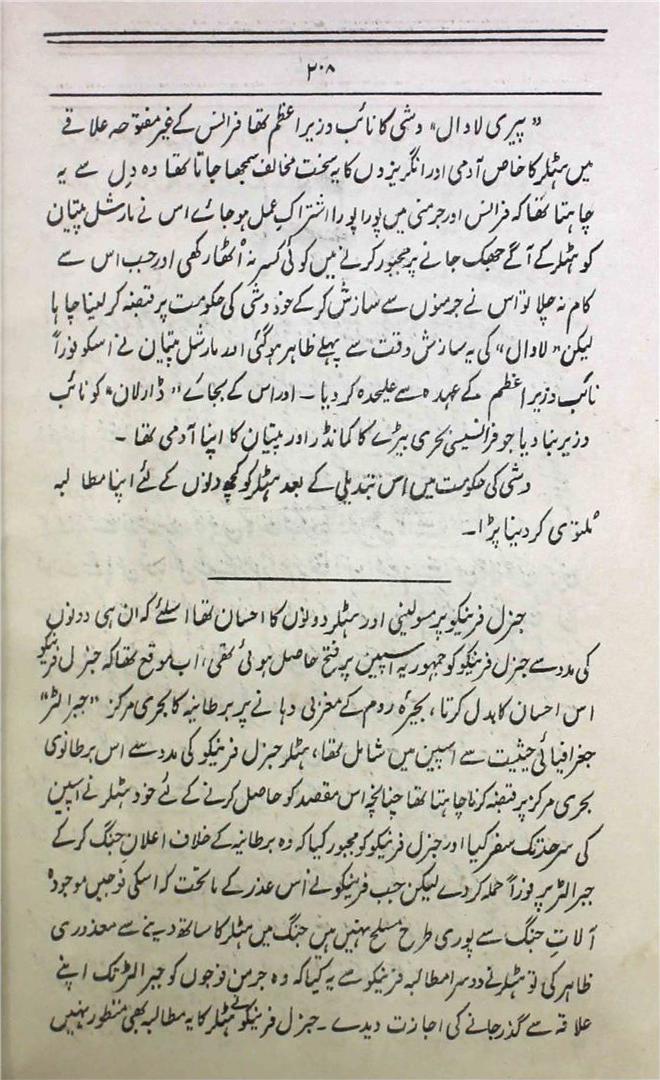 ۲۰۸
"پیری لاوال" وشی کا نائب وزیر اعظم تھا فرانس کے غیر مفتوحہ علاقے
میں ہٹلر کا خاص آدمی اور انگریزوں کا یہ سخت مخالف سمجھا جاتا تھا وہ دل سے یہ
چاہتا تھا کہ فرانس اور جرمنی میں پورا پورا اشتراک عمل ہو جائے اس نے مارشل پیتان
کو ہٹلر کے آگے جھک جانے پر مجبور کرنے میں کوئی کسر نہ اُٹھا رکھی اور جب اس سے
کام نہ چلا تو اس نے جرمنوں سے سازش کر کے خود وشی کی حکومت پر قبضہ کر لینا چاہا
لیکن "لاوال" کی یہ سازش وقت سے پہلے ظاہر ہو گئی اور مارشل پیتان نے اسکو فوراً
نائب وزیر اعظم کے عہدہ سے علیحدہ کر دیا ۔ اور اس کے بجائے "ڈارلان" کو نائب
وزیر بنا دیا جو فرانسیسی بحری بیڑے کا کمانڈر اور پیتان کا اپنا آدمی تھا ۔
وشی کی حکومت میں اس تبدیلی کے بعد ہٹلر کو کچھ دنوں کے لئے اپنا مطالبہ
مُلتوی کر دینا پڑا ۔
جنرل فرینکو پر مسولینی اور ہٹلر دونوں کا احسان تھا اسلئے کہ ان ہی دونوں
کی مدد سے جنرل فرینکو کو جمہوریہ اسپین پر فتح حاصل ہوئی تھی، اب موقع تھا کہ جنرل فرینکو
اس احسان کا بدل کرتا، بحیرۂ روم کے مغربی دہانے پر برطانیہ کا بحری مرکز "جبرالٹر"
جغرافیائی حیثیت سے اسپین میں شامل تھا، ہٹلر جنرل فرینکو کی مدد سے اس برطانوی
بحری مرکز پر قبضہ کرنا چاہتا تھا چنانچہ اس مقصد کو حاصل کرنے کے لئے خود ہٹلر نے اسپین
کی سرحد تک سفر کیا اور جنرل فرینکو کو مجبور کیا کہ وہ برطانیہ کے خلاف اعلان جنگ کر کے
جبرالٹر پر فوراً حملہ کر دے لیکن جب فرینکو نے اس عذر کے ماتحت کہ اسکی فوجیں موجودہ
آلاتِ جنگ سے پوری طرح مسلح نہیں ہیں جنگ میں ہٹلر کا ساتھ دینے سے معذوری
ظاہر کی تو ہٹلر نے دوسرا مطالبہ فرینکو سے یہ کیا کہ وہ جرمن فوجوں کو جبرالٹر تک اپنے
علاقہ سے گذر جانے کی اجازت دیدے ۔ جنرل فرینکو نے ہٹلر کا یہ مطالبہ بھی منظور نہیں